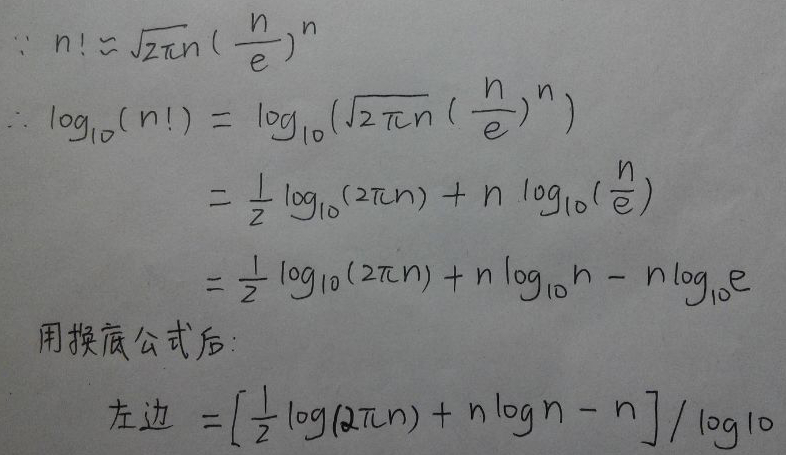 ∵ n! ≈ √2πn (n/e)^n
∴ log₁₀(n!) = log₁₀(√2πn (n/e)^n)
= 1/2 log₁₀(2πn) + n log₁₀(n/e)
= 1/2 log₁₀(2πn) + n log₁₀n − n log₁₀e
用换底公式后:
左边 = [1/2 log(2πn) + n log n − n] / log10